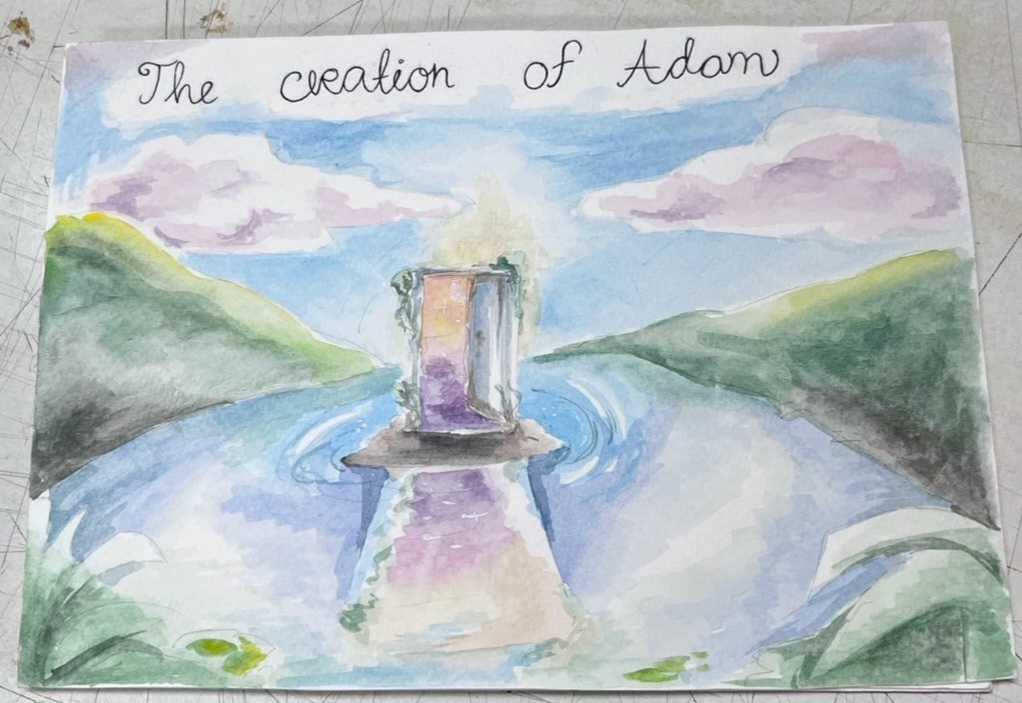 The creation of Adam